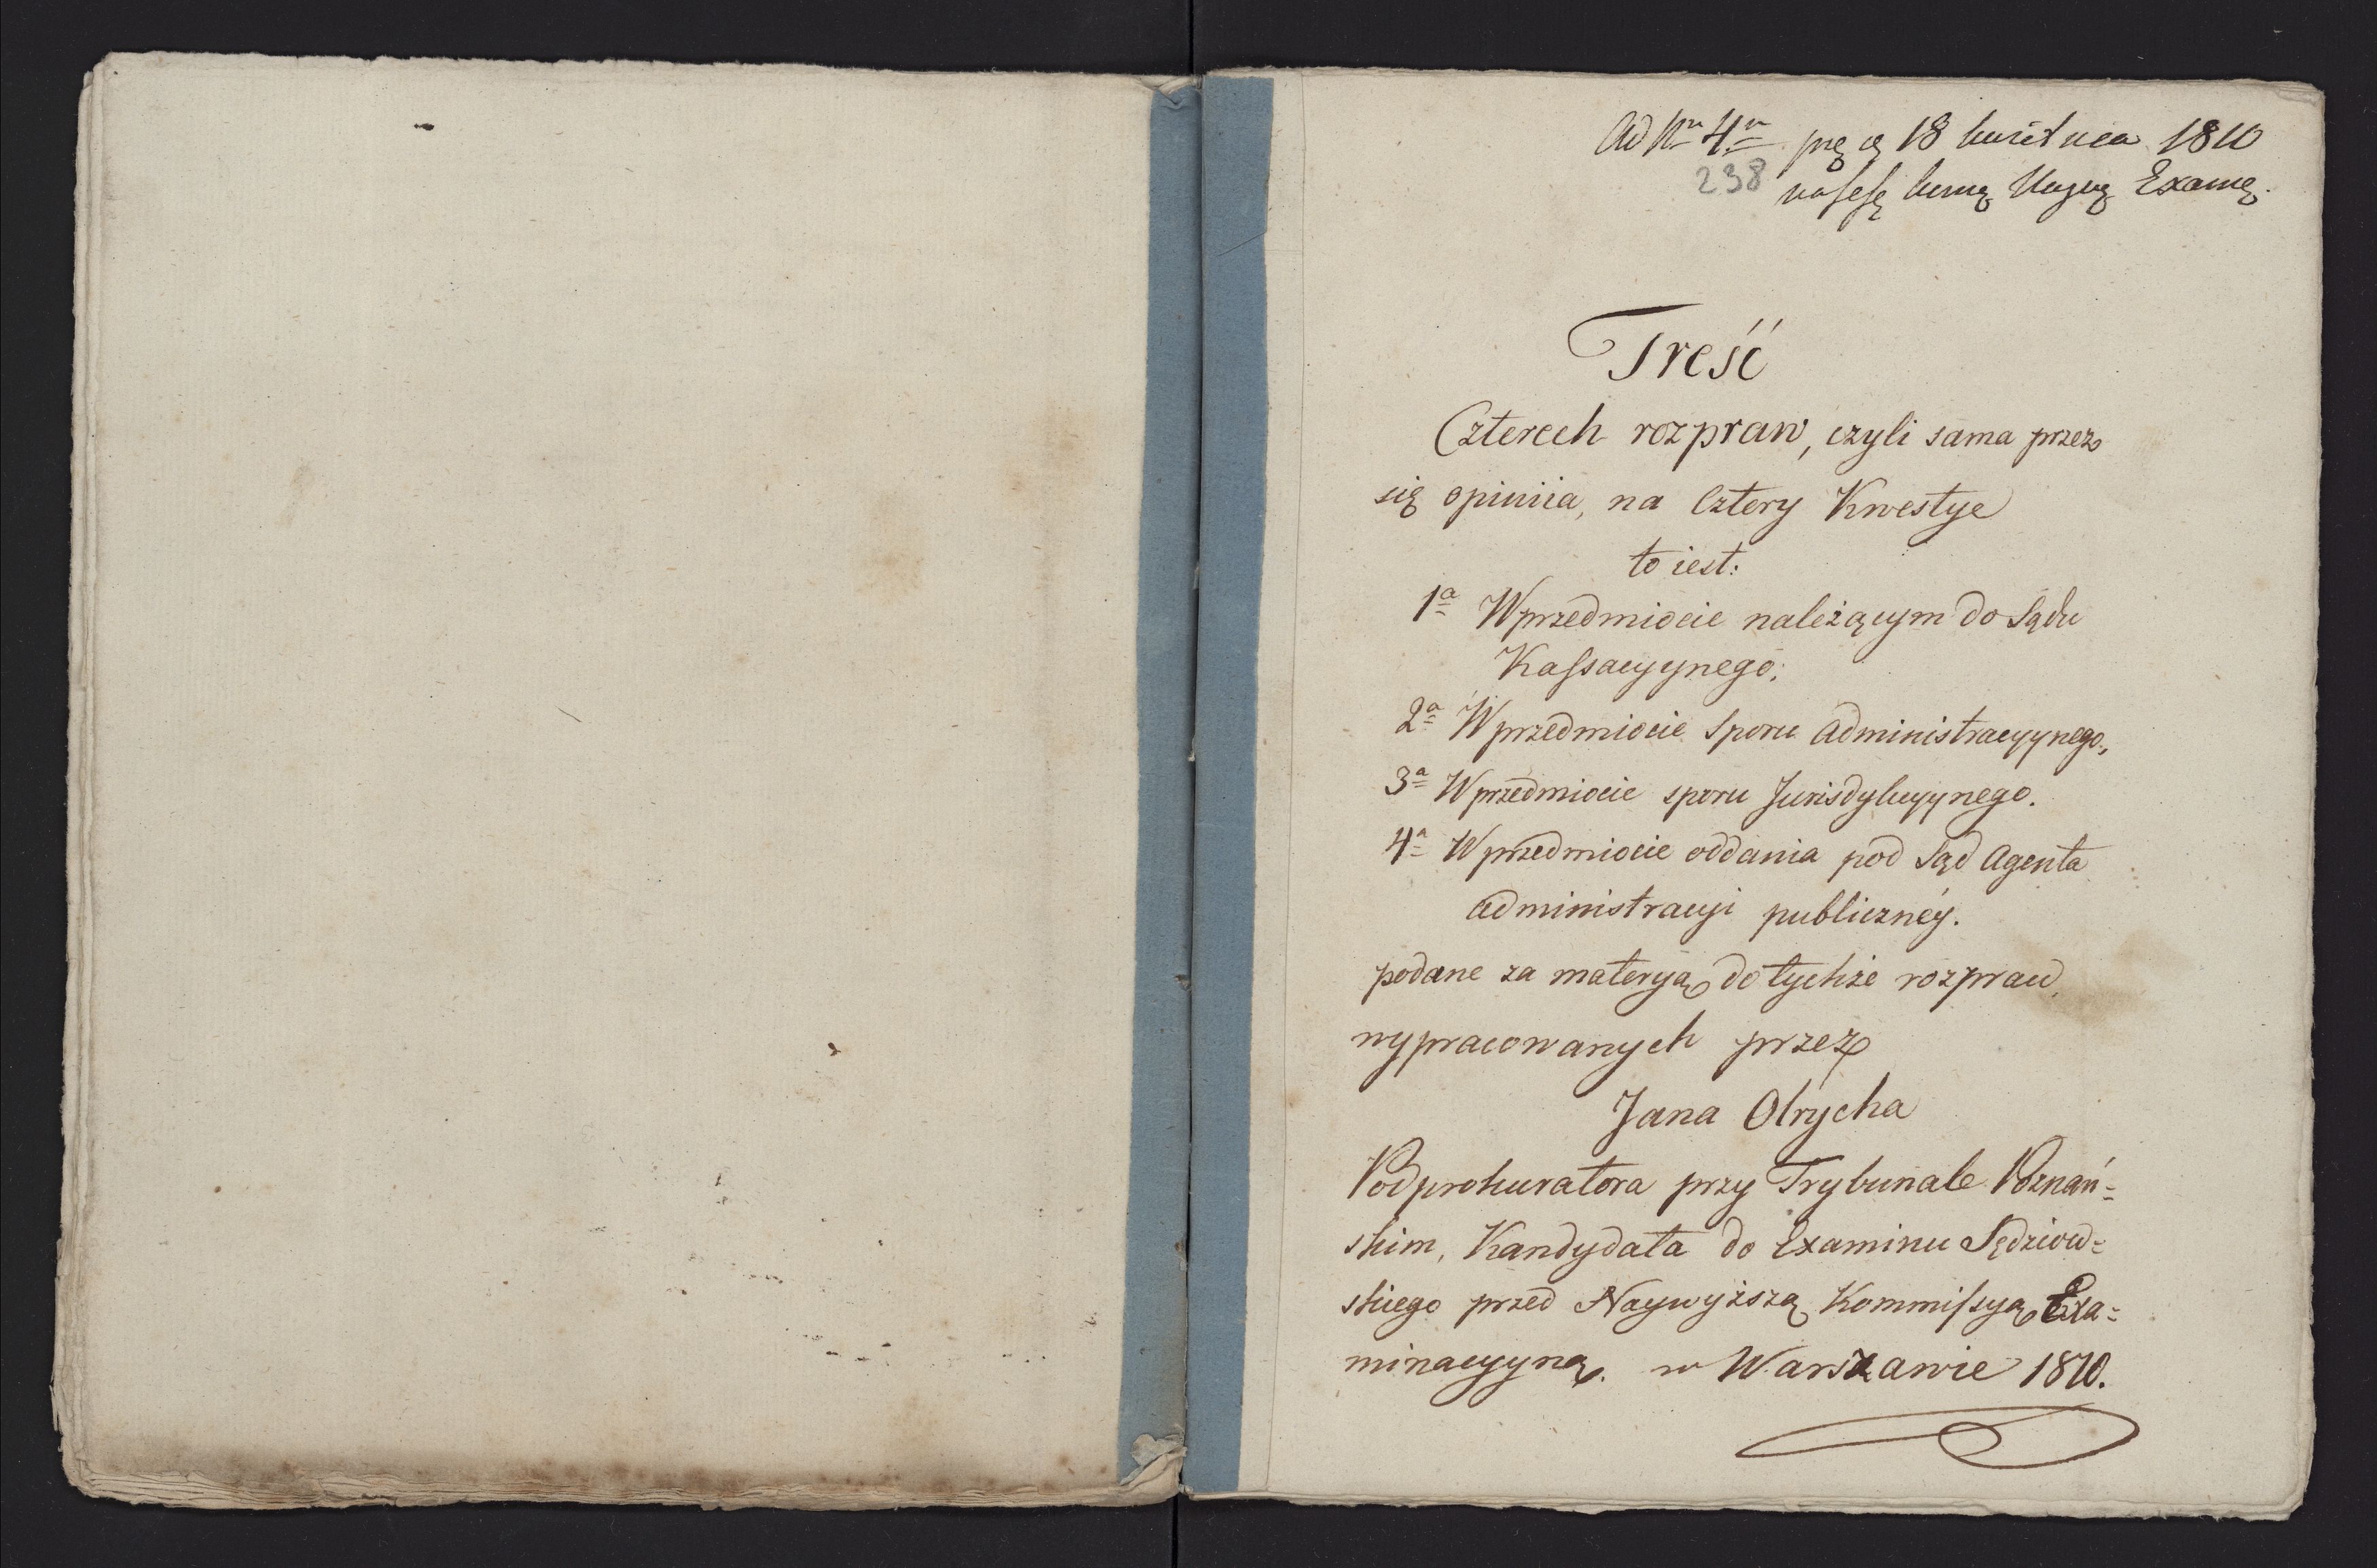 Ad Nr 4r 18 kwietnia 1810
238 Exam
Treść
Czterech rozpraw, czyli sama przez
się opiniia, na Cztery Kwestye
to iest:
1a W przedmiocie należącym do Sądu
Kassacyynego;
2a W przedmiocie Sporu Administracyynego,
3a W przedmiocie sporu Jurisdykcyynego.
4a W przedmiocie oddania pod Sąd Agenta
Administracyi publiczney.
podane za materyą do tychże rozpraw,
wypracowanych przez
Jana Olrycha
Podprokuratora przy Trybunale Poznań=
skim, Kandydata do Examinu Sędziow=
skiego przed Naywyższą Kommissyą Exa=
minacyyną. w Warszawie 1810.